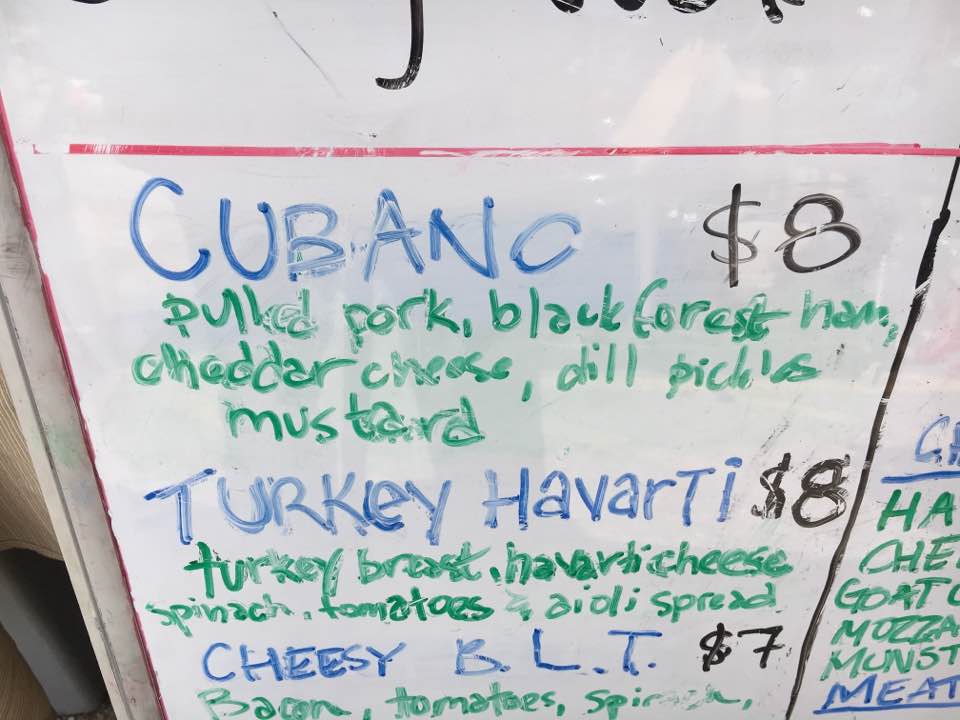 CUBANO $8
pulled pork, black forest ham,
cheddar cheese, dill pickles
mustard
TURKEY HAVARTI $8
turkey breast, havarti cheese
spinach, tomatoes & aioli spread
CHEESY B.L.T. $7
Bacon, tomatoes, spinach,
HA
CHE
GOAT
MOZZA
MUNST
MEAT